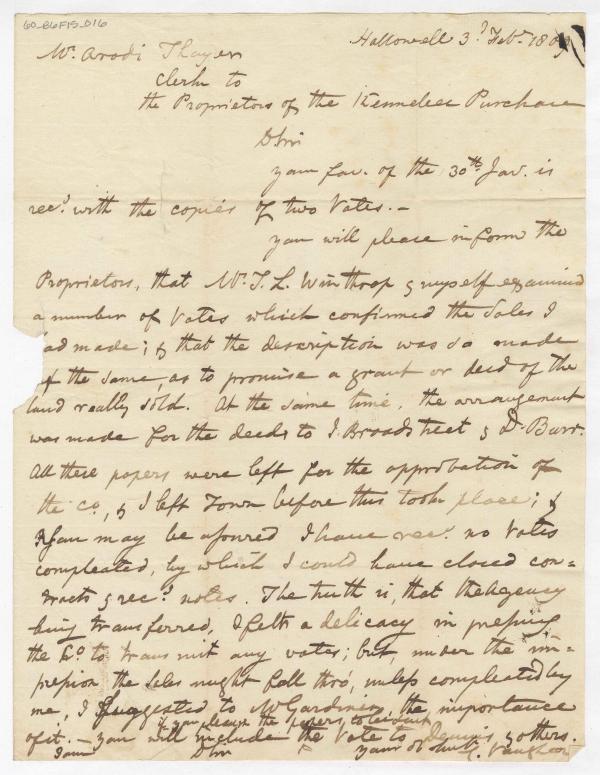 60_B6F15_D16
Hallowell 3d Feby 1809
Mr. Arodi Thayer
Clerk to
the Proprietors of the Kennebec Purchase
DSir
your fav. of the 30th Jan. is
recd with the copies of two Votes. —
you will please inform the
Proprietors, that Mr. T. L. Winthrop & myself examined
a number of Votes which confirmed the Sales I
had made; & that the description was so made
of the same, as to promise a grant or deed of the
land really sold. At the same time, the arrangement
was made for the deeds to J. Broadstreet & D. Burr.
All these papers were left for the approbation of
the Co, & I left Town before this took place; &
you may be assured I have recd no Votes
compleated, by which I could have closed con=
tracts & recd notes. The truth is, that the Agency
being transferred, I felt a delicacy in pressing
the Co to transmit any votes; but, under the im=
pression the sales might fall thro', unless compleated by
me, I suggested to Mr Gardiner, the importance
if you please the papers to be sent
of it. — you will include the Vote to Dennis & others.
I am DSir your Obt Sert C. Vaughan